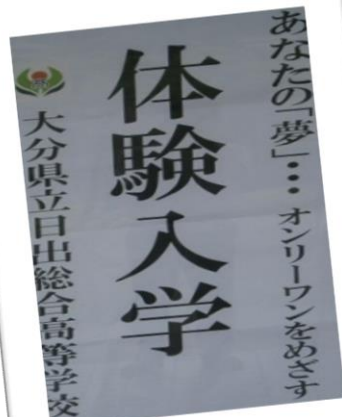 あなたの「夢」… オンリーワンをめざす
体験入学
大分県立日出総合高等学校